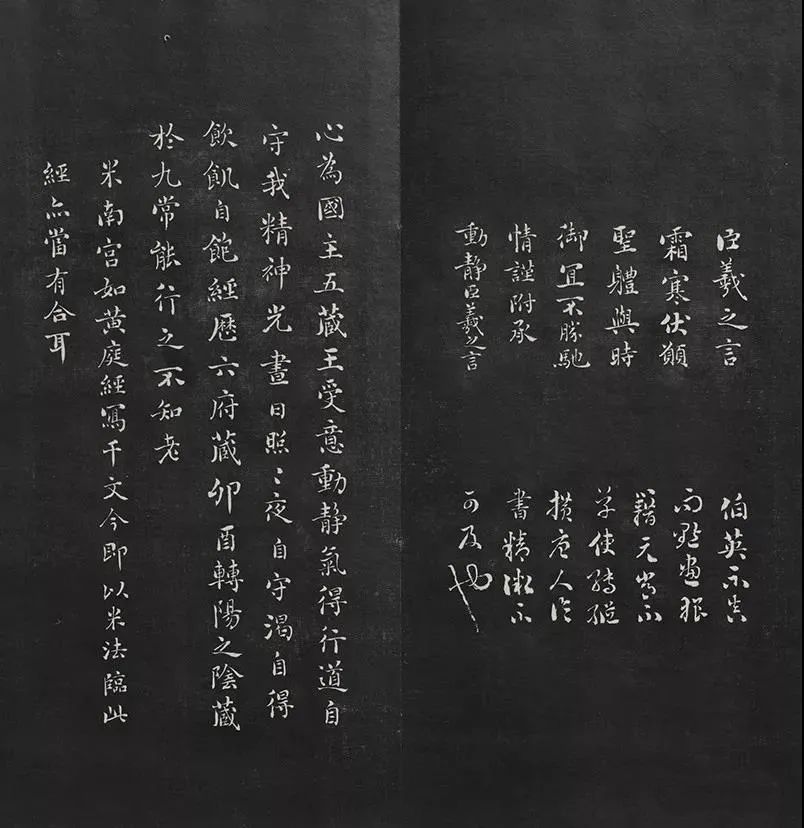 臣羲之言
霜寒伏願
聖體與時
御宜不勝馳
情謹附承
動靜臣羲之言
伯英不真
而點畫狼
藉元常不
草使轉縱
橫唐人論
書精微不
可及也
心為國主五藏王受意動靜氣得行道自
守我精神光晝日照〻夜自守渴自得
飲飢自飽經歷六府藏卯酉轉陽之陰藏
於九常能行之不知老
米南宮如黃庭經寫千文今即以米法臨此
經亦當有合耳